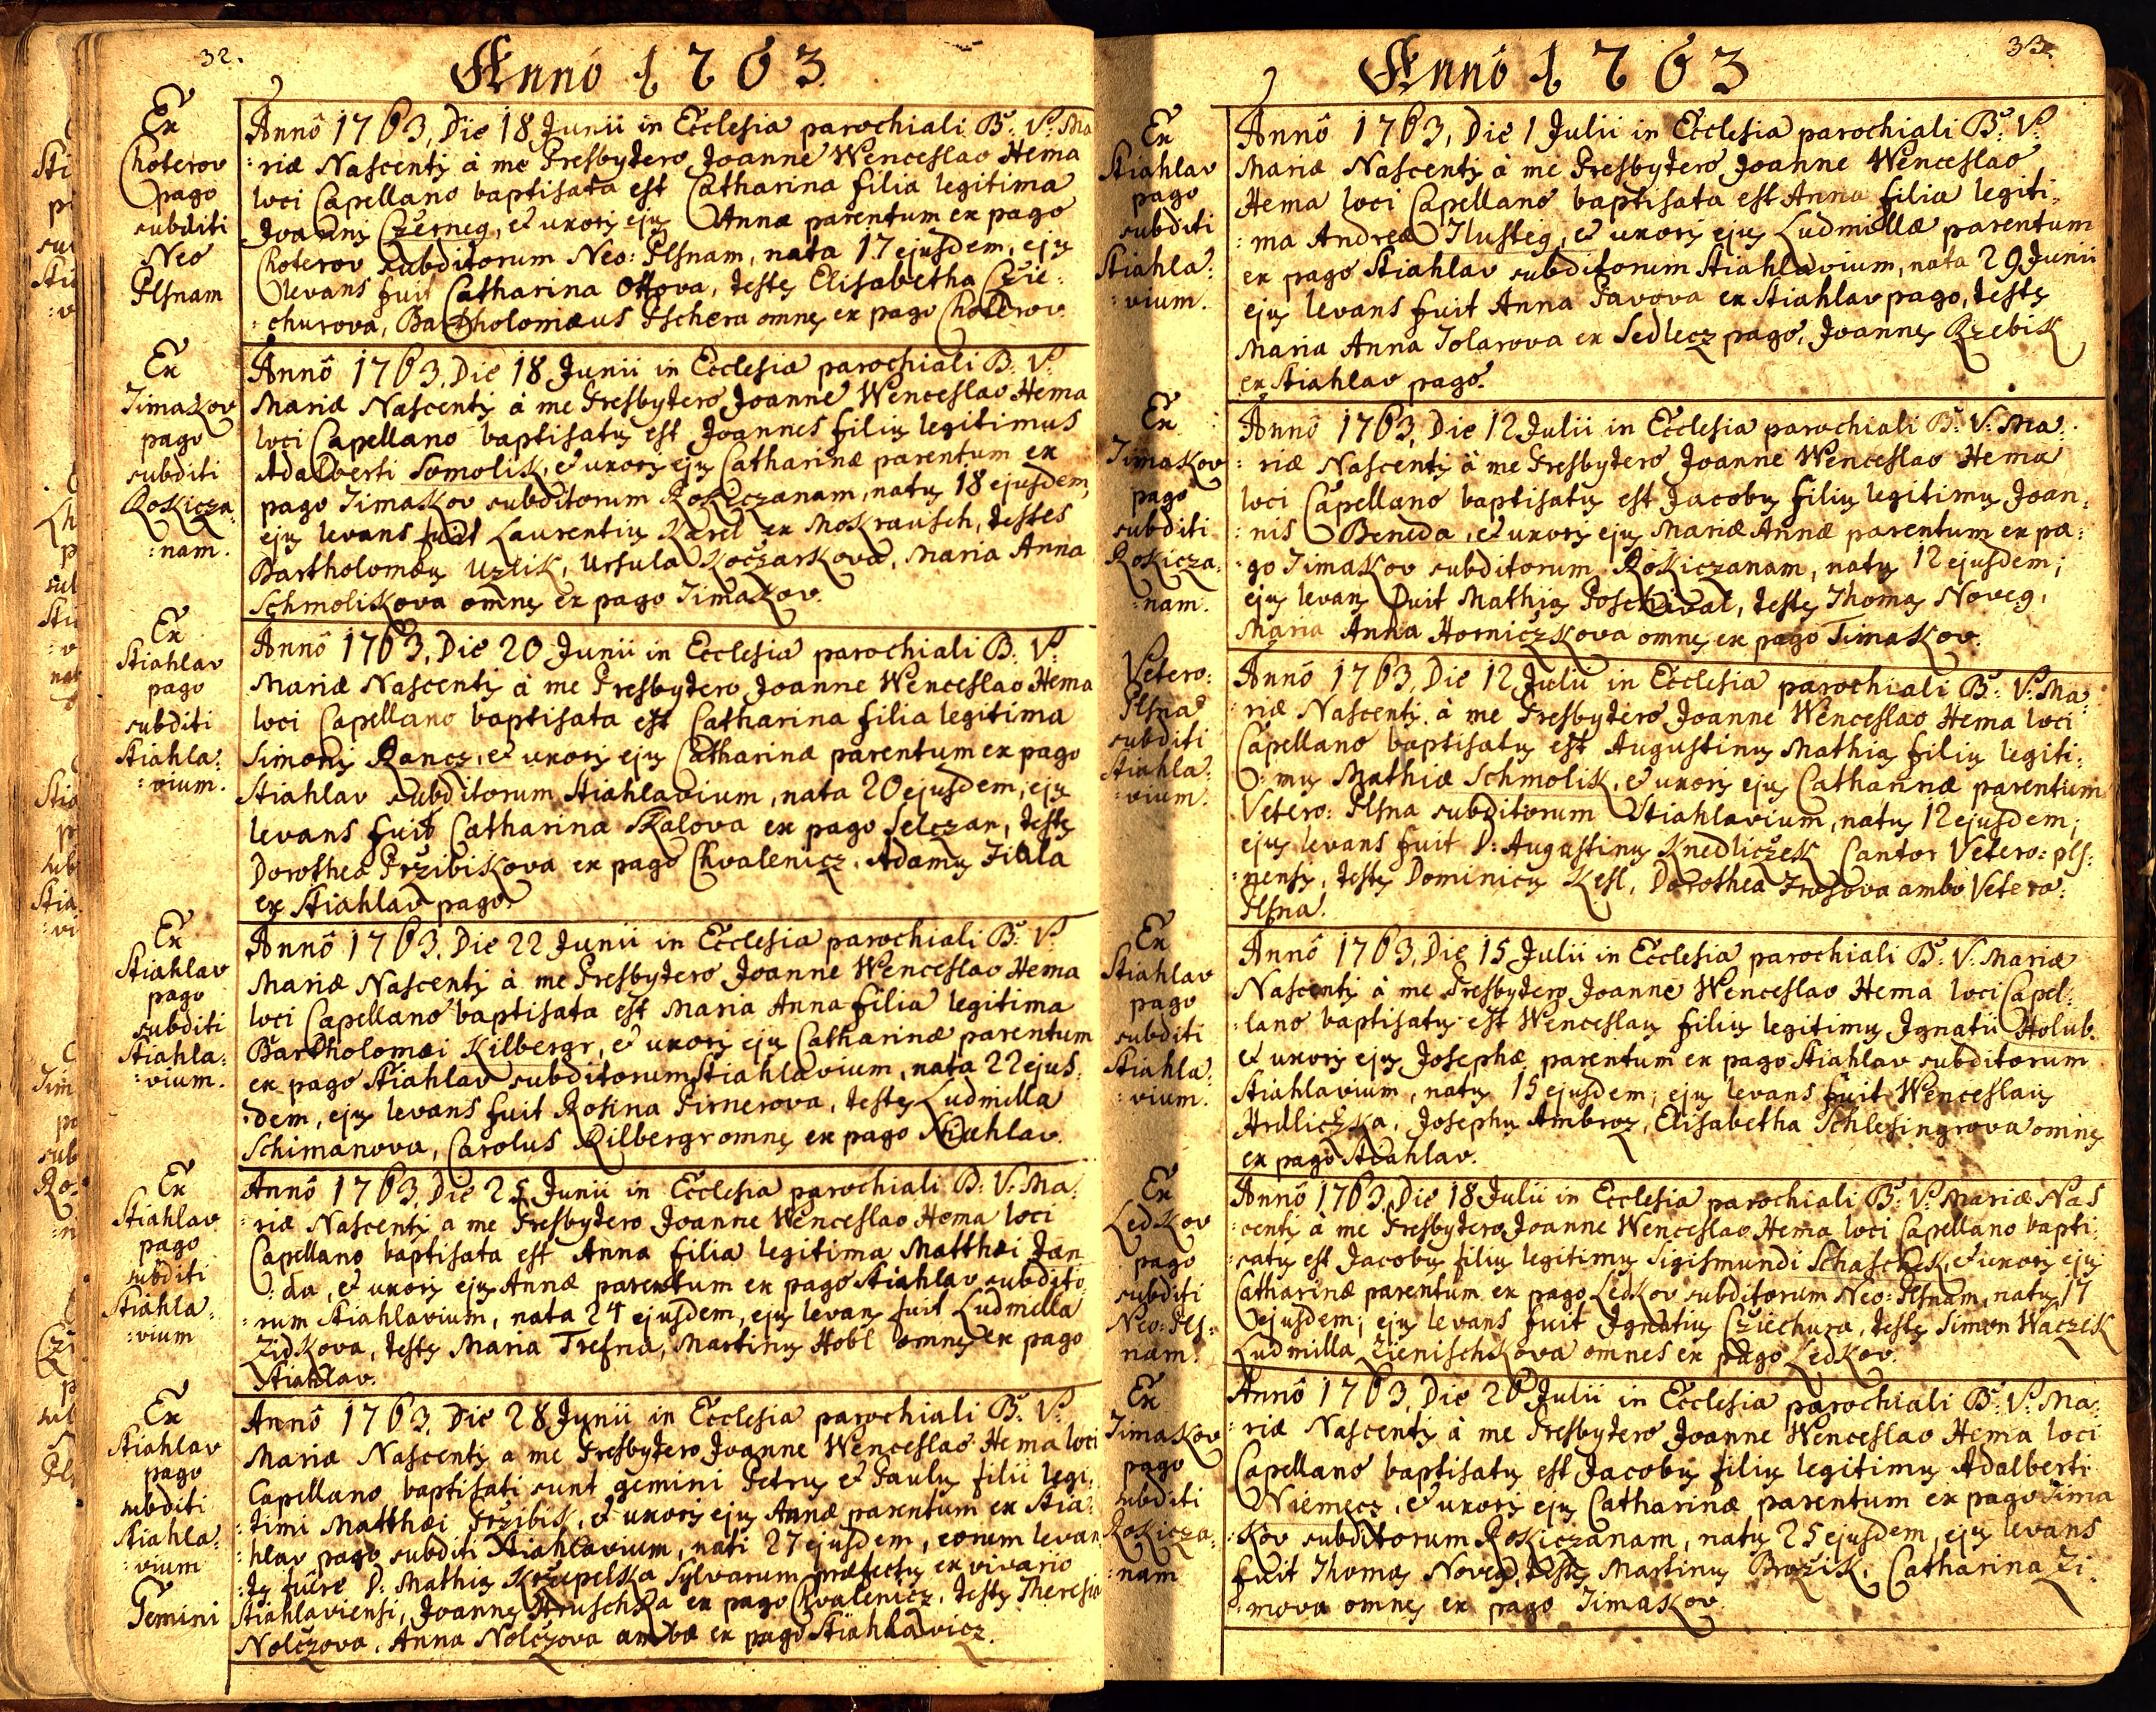 32.
Annô 1763.
Ex
Choterov
pago
subditi
Neo
Plsnam
Annô 1763, Die 18 Junii in Ecclesia parochiali B: V: Ma
:riæ Nascentis à me Presbytero Joanne Wenceslao Hema
loci Capellano baptisata est Catharina filia legitima
Joannis Czerneg, et uxoris ejus Annæ parentum ex pago
Choterov subditorum Neo: Plsnam, nata 17 ejusdem, ejus
levans fuit Catharina Ottova, testes Elisabetha Czie:
:churova, Bartholomæus Pschera omnes ex pago Choterov.
Ex
Timakov
pago
subditi
Rokicza:
:nam.
Annô 1763, Die 18 Junii in Ecclesia parochiali B: V:
Mariæ Nascentis à me Presbytero Joanne Wenceslao Hema
loci Capellano baptisatus est Joannes filius legitimus
Adalberti Somolik, et uxoris ejus Catharinæ parentum ex
pago Timakov subditorum Rokiczanam, natus 18 ejusdem,
ejus levans fuit Laurentius Karel ex Mokrausch, testes
Bartholomæus Uzlik, Ursula Koczarkova, Maria Anna
Schmolikova omnes ex pago Timakov.
Ex
Stiahlav
pago
subditi
Stiahla:
:vium.
Annô 1763, Die 20 Junii in Ecclesia parochiali B: V:
Mariæ Nascentis à me Presbytero Joanne Wenceslao Hema
loci Capellano baptisata est Catharina filia legitima
Simonis Rancz, et uxoris ejus Catharinæ parentum ex pago
Stiahlav subditorum Stiahlavium, nata 20 ejusdem, ejus
levans fuit Catharina Skalova ex pago Selczan, testes
Dorothea Przibikova ex pago Chvalenicz, Adamus Fiala
ex Stiahlav pago.
Ex
Stiahlav
pago
subditi
Stiahla:
:vium.
Annô 1763, Die 22 Junii in Ecclesia parochiali B: V:
Mariæ Nascentis à me Presbytero Joanne Wenceslao Hema
loci Capellano baptisata est Maria Anna filia legitima
Bartholomæi Kilbergr, et uxoris ejus Catharinæ parentum
ex pago Stiahlav subditorum Stiahlavium, nata 22 ejus:
:dem, ejus levans fuit Rosina Pirnerova, testes Ludmilla
Schimanova, Carolus Kilbergr omnes ex pago Stiahlav.
Ex
Stiahlav
pago
subditi
Stiahla:
:vium
Annô 1763, Die 25 Junii in Ecclesia parochiali B: V: Ma:
:riæ Nascentis a me Presbytero Joanne Wenceslao Hema loci
Capellano baptisata est Anna filia legitima Matthæi Jan
:da, et uxoris ejus Annæ parentum ex pago Stiahlav subdito:
:rum Stiahlavium, nata 24 ejusdem, ejus levans fuit Ludmilla
Zidkova, testes Maria Trefna, Martinus Hobl omnes ex pago
Stiahlav.
Ex
Stiahlav
pago
subditi
Stiahla:
:vium
Gemini
Annô 1763, Die 28 Junii in Ecclesia parochiali B: V:
Mariæ Nascentis a me Presbytero Joanne Wenceslao Hema loci
Capellano baptisati sunt gemini Petrus et Paulus filii legi:
:timi Matthæi Przibik, et uxoris ejus Annæ parentum ex Stia:
:hlav pago subditi Stiahlavium, nati 27 ejusdem, eorum levan
:tes fuêre D: Mathias Krzepelka Sylvarum præfectus ex vivario
Stiahlaviensi, Joannes Hruschka ex pago Chvalenicz, testes Theresia
Nolczova, Anna Nolczova ambæ ex pago Stiahlavicz.
33.
Annô 1763
Ex
Stiahlav
pago
subditi
Stiahla:
:vium.
Annô 1763, Die 1 Julii in Ecclesia parochiali B: V:
Mariæ Nascentis à me Presbytero Joanne Wenceslao
Hema loci Capellano baptisata est Anna filia legiti:
:ma Andreæ Tlusteg, et uxoris ejus Ludmillæ parentum
ex pago Stiahlav subditorum Stiahlavium, nata 29 Junii
ejus levans fuit Anna Pavova ex Stiahlav pago, testes
Maria Anna Tolarova ex Sedlecz pago, Joannes Rzebik
ex Stiahlav pago.
Ex
Timakov
pago
subditi
Rokicza:
:nam.
Annô 1763, Die 12 Julii in Ecclesia parochiali B: V: Ma:
:riæ Nascentis à me Presbytero Joanne Wenceslao Hema
loci Capellano baptisatus est Jacobus filius legitimus Joan:
:nis Beneda, et uxoris ejus Mariæ Annæ parentum ex pa:
:go Timakov subditorum Rokiczanam, natus 12 ejusdem;
ejus levans fuit Mathias Poschival, testes Thomas Noveg,
Maria Anna Horniczkova omnes ex pago Timakov.
Vetero:
Plsna
subditi
Stiahla:
:vium.
Annô 1763, Die 12 Julii in Ecclesia parochiali B: V: Ma:
:riæ Nascentis à me Presbytero Joanne Wenceslao Hema loci
Capellano baptisatus est Augustinus Mathias filius legiti:
:mus Mathiæ Schmolik, et uxoris ejus Catharinæ parentium
Vetero: Plsna subditorum Stiahlavium, natus 12 ejusdem;
ejus levans fuit D: Augustinus Knedliczek Cantor Vetero: pls:
:nensis, testes Dominicus Kesl, Dorothea Frosova ambo Vetero:
Plsna.
Ex
Stiahlav
pago
subditi
Stiahla:
:vium.
Annô 1763, Die 15 Julii in Ecclesia parochiali B: V: Mariæ
Nascentis à me Presbytero Joanne Wenceslao Hema loci Capel:
:lano baptisatus est Wenceslaus filius legitimus Ignatii Holub.
et uxoris ejus Josephæ parentum ex pago Stiahlav subditorum
Stiahlavium, natus 15 ejusdem; ejus levans fuit Wenceslaus
Hrdliczka, Josephus Ambroz, Elisabetha Schlesingrova omnes
ex pago Stiahlav.
Ex
Ledkov
pago
subditi
Neo: Pls:
nam.
Annô 1763, Die 18 Julii in Ecclesia parochiali B: V: Mariæ Nas
:centis à me Presbytero Joanne Wenceslao Hema loci Capellano bapti:
:satus est Jacobus filius legitimus Sigismundi Schaschek, et uxoris ejus
Catharinæ parentum ex pago Ledkov subditorum Neo: Plsnam, natus 17
ejusdem; ejus levans fuit Ignatius Cziechura, testes Simon Waczek
Ludmilla Zienischkova omnes ex pago Ledkov.
Ex
Timakov
pago
subditi
Rokicza:
:nam
Annô 1763, Die 26 Julii in Ecclesia parochiali B: V: Ma:
:riæ Nascentis à me Presbytero Joanne Wenceslao Hema loci
Capellano baptisatus est Jacobus filius legitimus Adalberti
Niemecz, et uxoris ejus Catharinæ parentum ex pago Tima
:kov subditorum Rokiczanam, natus 25 ejusdem, ejus levans
fuit Thomas Noveg, testes Martinus Brozik, Catharina Zi:
:mova omnes ex pago Timakov.